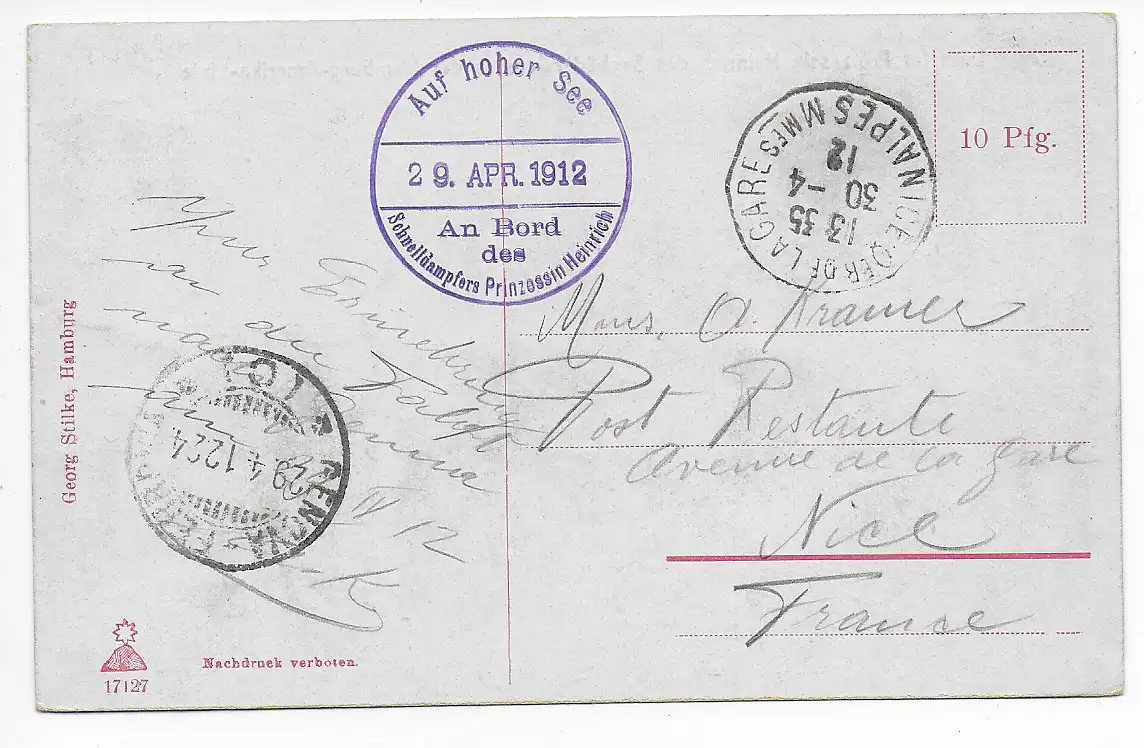 Auf hoher See
29. APR. 1912
An Bord
des
Schnelldampfers Prinzessin Heinrich
NICE QER DE LA GARE
ALPES MMES
13 35
30 -4
12
10 Pfg.
Zur Erinnerung
an die Fahrt
nach Genua
IV 12
Mons. A. Kramer
Post Restante
Avenue de la gare
Nice
France
GENOVA FERROVIA
29.4.12 24
Georg Stilke, Hamburg
17127
Nachdruck verboten.